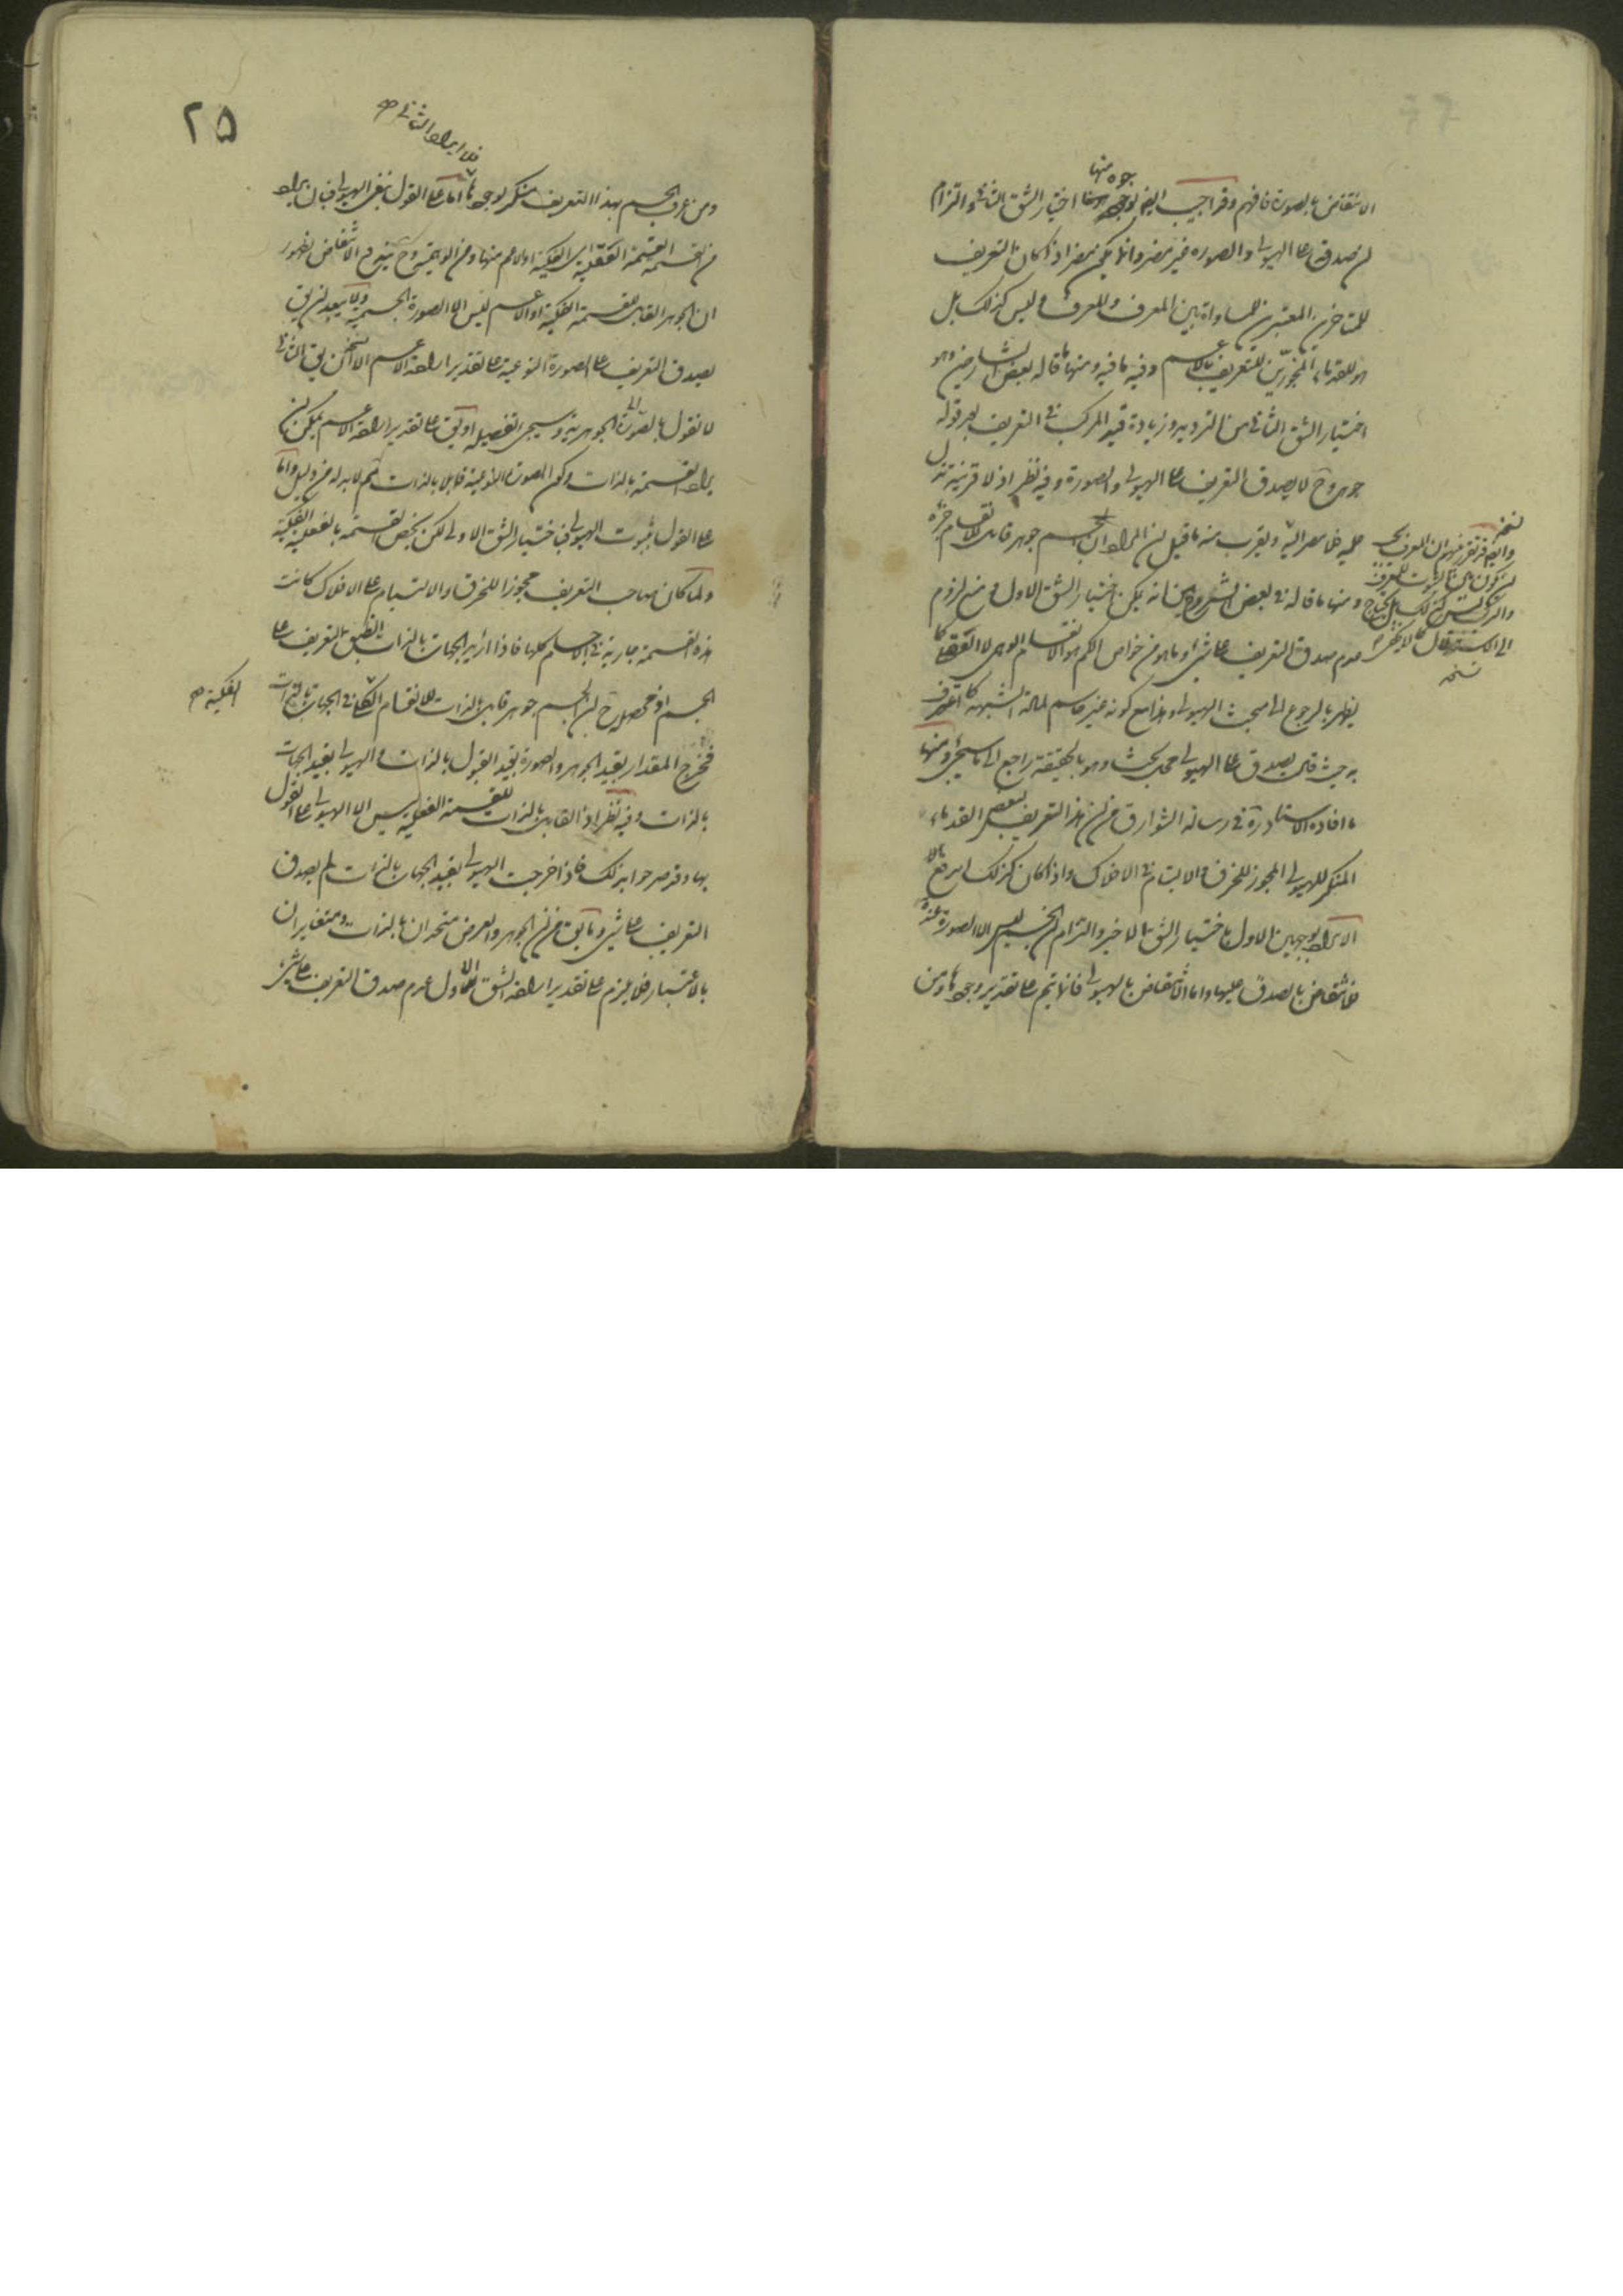 بوجوه منها
الانتقاض بالصورة فافهم وقد اجيب ايضا اختيار الشق الثاني والتزام
ان صدقه على الهيولى والصورة غير مضر وانما يكون مضرا اذا كان التعريف
للمتأخرين المعتبرين للمساواة بين المعرف والمعرف وليس كذلك بل
هو للقدماء المجوزين للتعريف بالاعم وفيه ما فيه ومنها ما قاله بعض الشارحين وهو
اختيار الشق الثاني من الترديد وزيادة قيد المركب في التعريف بعد قوله
جوهر وح لا يصدق التعريف على الهيولى والصورة وفيه نظر اذ لا قرينة تدل
عليه ويقرب منه ما قيل ان المراد ان الجسم جوهر قابل للانقسام
ومنها ما قاله في بعض الشروح من انه يمكن اختيار الشق الاول ومنع لزوم
عدم صدق التعريف على شيء وما هو من خواص الكم هو الانقسام الوهمي لا الفكي كما
يظهر بالرجوع الى مبحث الهيولى وهذا مع كونه غير حاسم لمادة الشبهة كما اعترف
به حيث قال يصدق على الهيولى محل بحث وهو بالحقيقة راجع الى ما سيجيء ومنها
ما افاده الاستاد في رسالة الشوارق من ان هذا التعريف لبعض القدماء
المنكر للهيولى المجوز للخرق والالتيام في الافلاك واذا كان كذلك اندفع
الايراد بوجهين الاول باختيار الشق الاخير والتزام ان الجسم ليس الا الصورة
فانتقاض بالصدق عليها واما الانتقاض بالهيولى فانما يتم على تقدير وجودها ومن
نسخة
وايضا قد تقرر منهم ان المعرف يجب
ان يكون بين الثبوت للمعرف
والتركيب ليس كذلك بل يحتاج
الى الاستدلال كما لا يخفى
نسخة
٢٥
فلا ايراد الثاني صح
ومن عرف الجسم بهذا التعريف منكر لوجودها اما على القول بنفي الهيولى فبان يراد
من القسمة القسمة الفكية او الاعم منها ومن الوهمية وح يندفع الانتقاض لظهور
ان الجوهر القابل للقسمة الفكية او الاعم ليس الا الصورة الجسمية ولا يبعد ان يق
يصدق التعريف على الصورة النوعية على تقدير ارادة الاعم الا ان يق الثاني
لا نقول بالصورة الجوهرية وسيجيء تفصيله او يق على تقدير ارادة الاعم يمكن ان
يراد القسمة بالذات وكون الصورة النوعية قابلا بالذات ثم لا بد له من دليل واما
على القول بثبوت الهيولى فباختيار الشق الاول لكن يخص القسمة بالفعلية الفكية
ولما كان صاحب التعريف مجوزا للخرق والالتيام على الافلاك كانت
هذه القسمة جارية في الاجسام كلها فاذا اريد الجهات بالذات انطبق التعريف على
الجسم اذ محصله ح ان الجسم جوهر قابل بالذات للانقسام في الجهات بالذات
الفكية صح
فخرج المقدار بقيد الجوهر والصورة بقيد القبول بالذات والهيولى بقيد الجهات
بالذات وفيه نظر اذ القابل بالذات للقسمة الفعلية ليس الا الهيولى على القول
بها وقد صرحوا بذلك فاذا خرجت الهيولى بقيد الجهات بالذات لم يصدق
التعريف على شيء وما يق من ان الجوهر والعرض متحدان بالذات ومتغايران
بالاعتبار فلا يلزم على تقدير ارادة الشق الاول عدم صدق التعريف على شيء